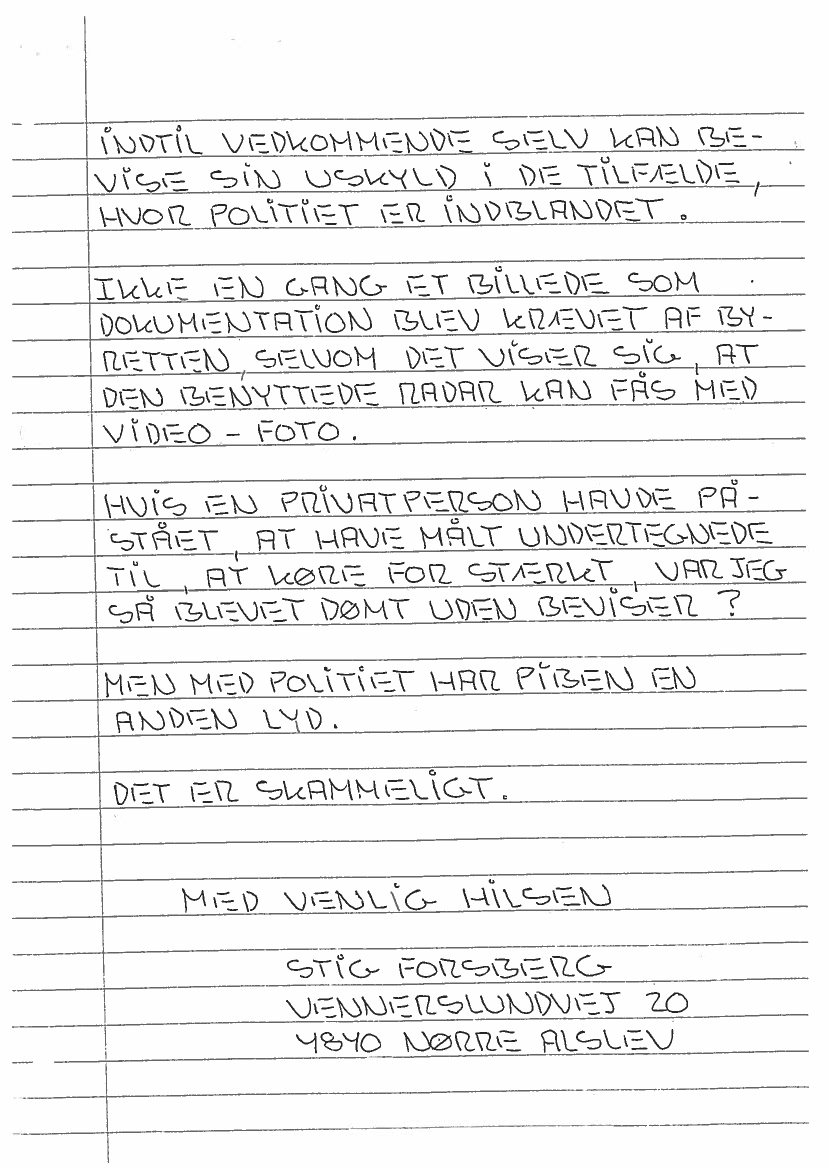 INDTIL VEDKOMMENDE SELV KAN BE-
VISE SIN USKYLD I DE TILFÆLDE,
HVOR POLITIET ER INDBLANDET.
IKKE EN GANG ET BILLEDE SOM
DOKUMENTATION BLEV KRÆVET AF BY-
RETTEN, SELVOM DET VISER SIG, AT
DEN BENYTTEDE RADAR KAN FÅS MED
VIDEO - FOTO.
HVIS EN PRIVATPERSON HAVDE PÅ-
STÅET, AT HAVE MÅLT UNDERTEGNEDE
TIL, AT KØRE FOR STÆRKT, VAR JEG
SÅ BLEVET DØMT UDEN BEVISER ?
MEN MED POLITIET HAR PIBEN EN
ANDEN LYD.
DET ER SKAMMELIGT.
MED VENLIG HILSEN
STIG FORSBERG
VENNERSLUNDVEJ 20
4840 NØRRE ALSLEV